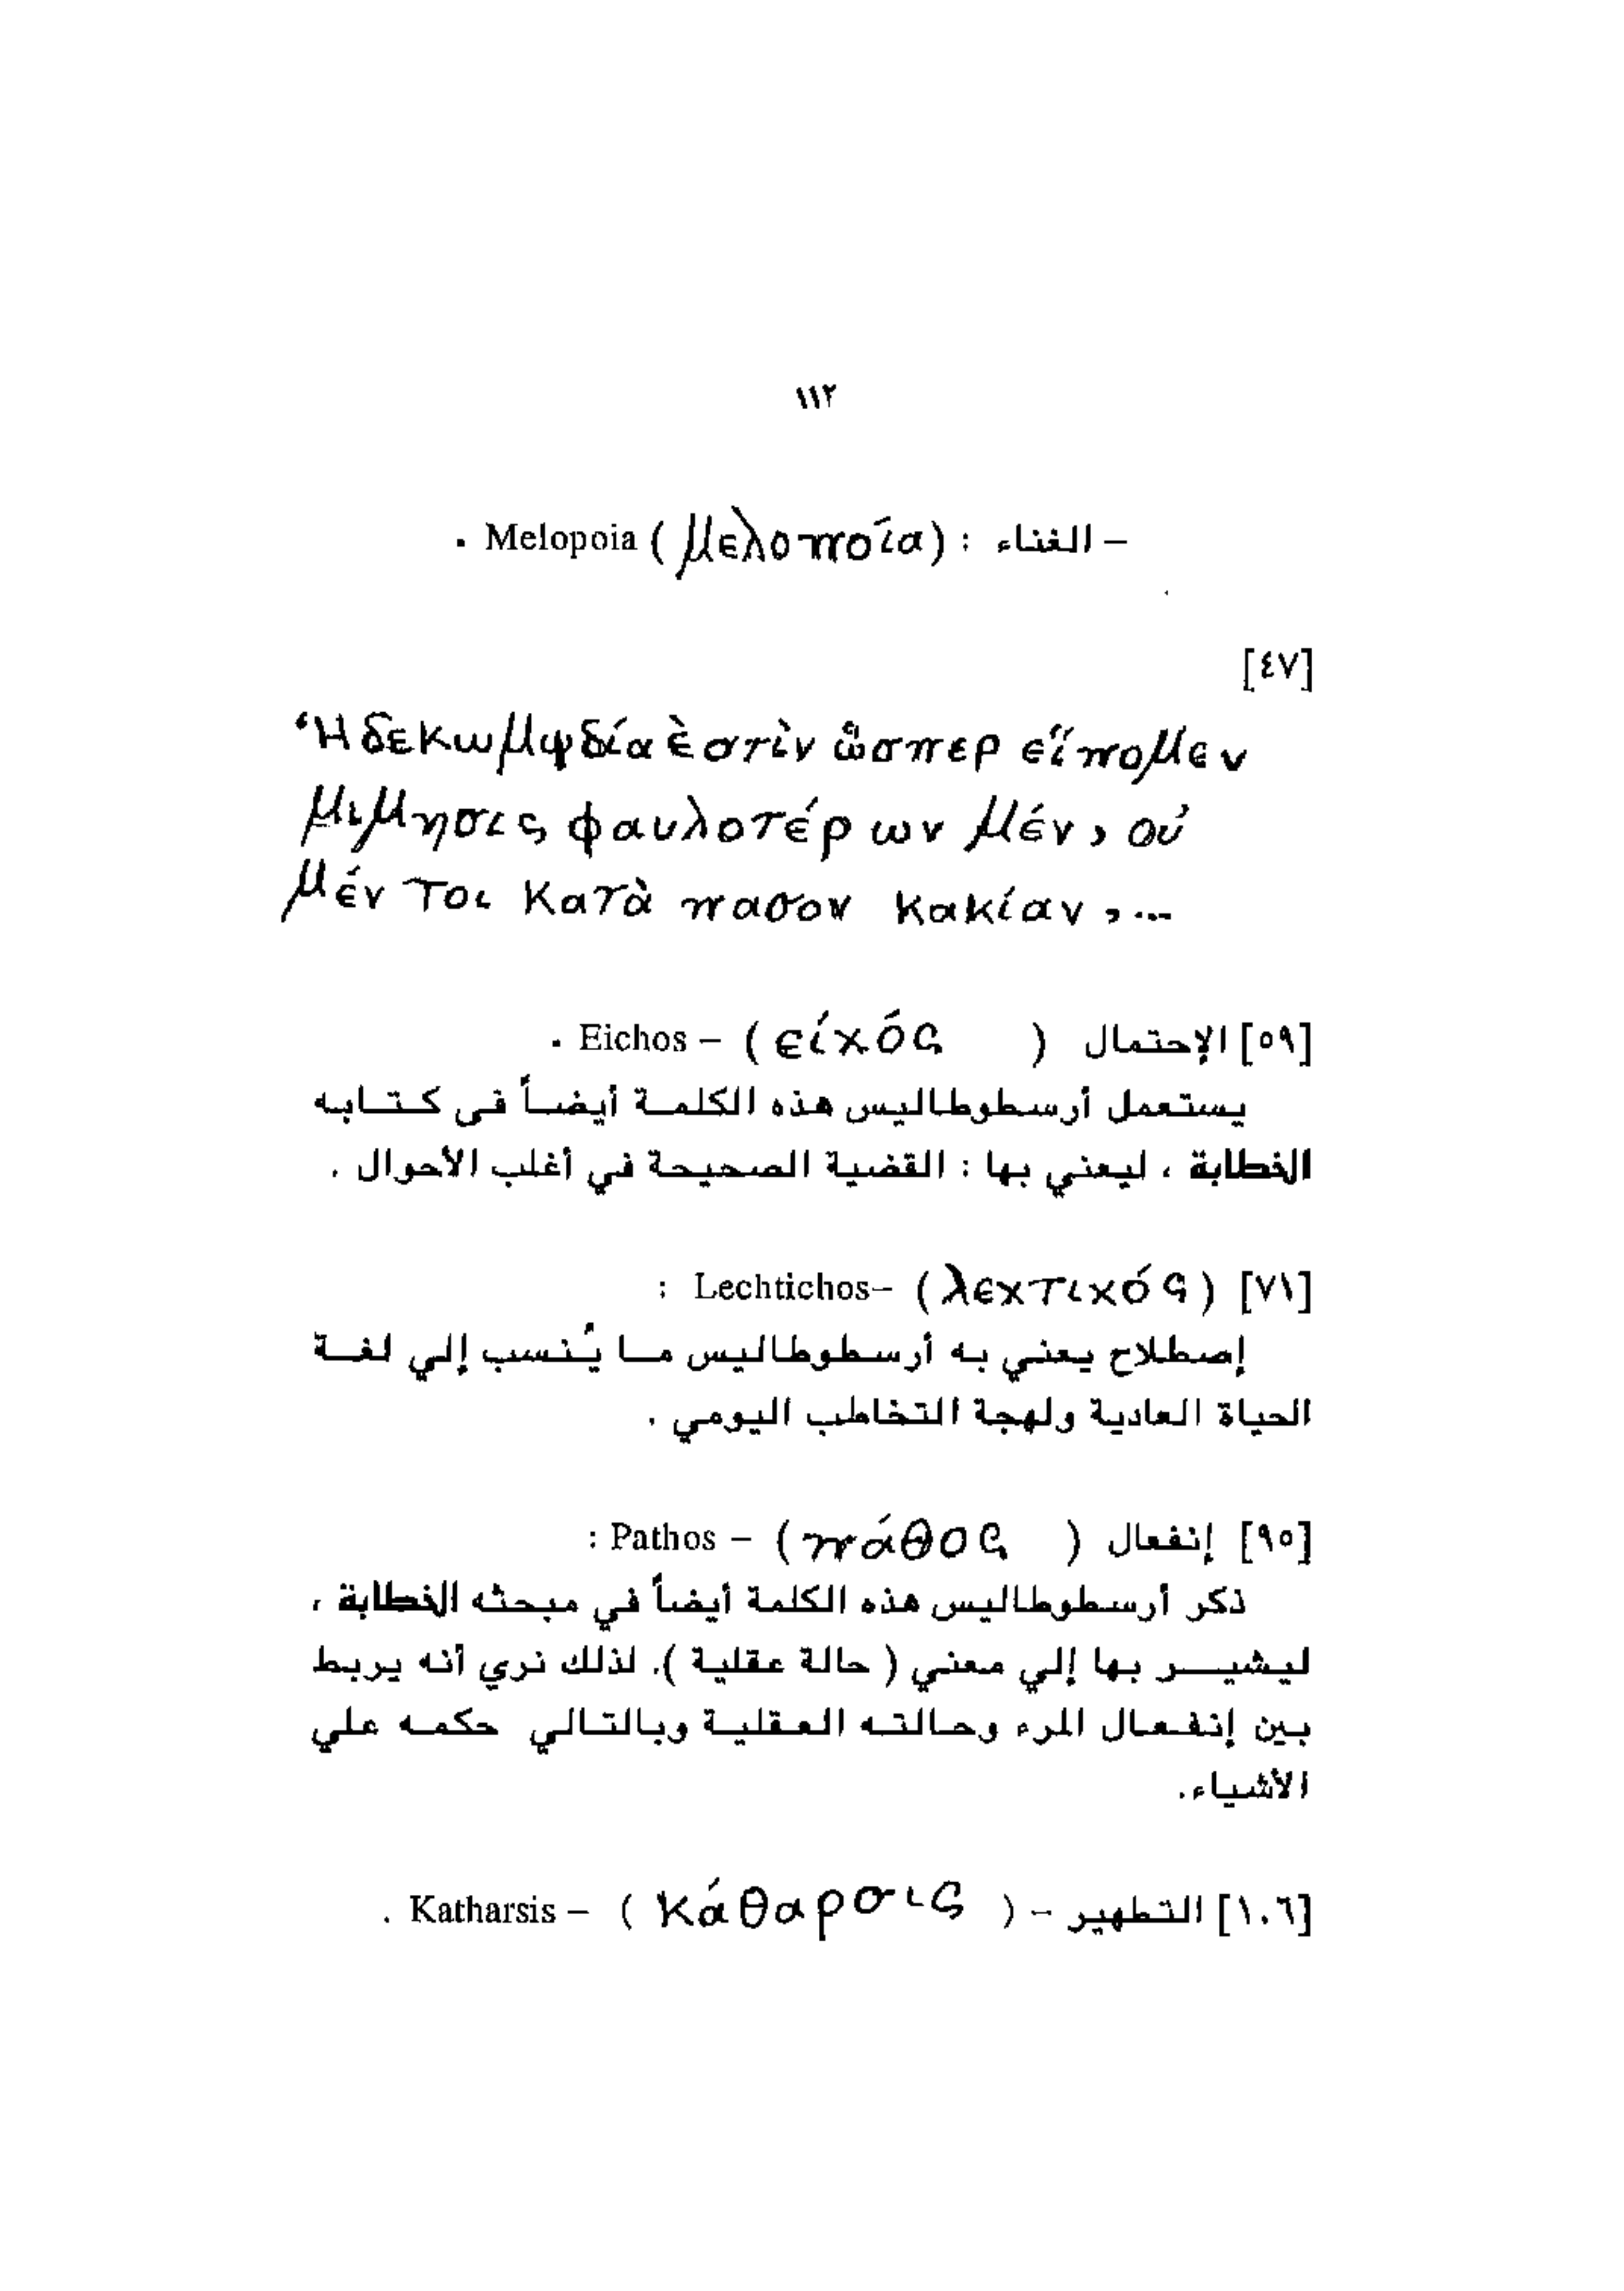 ١١٢
– الغناء : (μελοποΐα) Melopoia .
[٤٧]
Ἡ δὲ κωμῳδία ἐστὶν ὥσπερ εἴπομεν
μιμησις φαυλοτέρων μέν, οὐ
μέν τοι κατὰ πασον κακίαν, ...
[٥٩] الإحتمال ( εἰχός ) – Eichos .
يستعمل أرسطوطاليس هذه الكلمة أيضاً فى كتابه
الخطابة ، ليعني بها : القضية الصحيحة في أغلب الأحوال .
[٧١] (λεχτιχός) –Lechtichos :
إصطلاح يعني به أرسطوطاليس ما يُنسب إلي لغة
الحياة العادية ولهجة التخاطب اليومي .
[٩٥] إنفعال ( πάθος ) – Pathos :
ذكر أرسطوطاليس هذه الكلمة أيضاً في مبحثه الخطابة ،
ليشير بها إلي معني ( حالة عقلية ). لذلك نري أنه يربط
بين إنفعال المرء وحالته العقلية وبالتالي حكمه علي
الأشياء.
[١٠٦] التطهير – ( κάθαρσις ) – Katharsis .